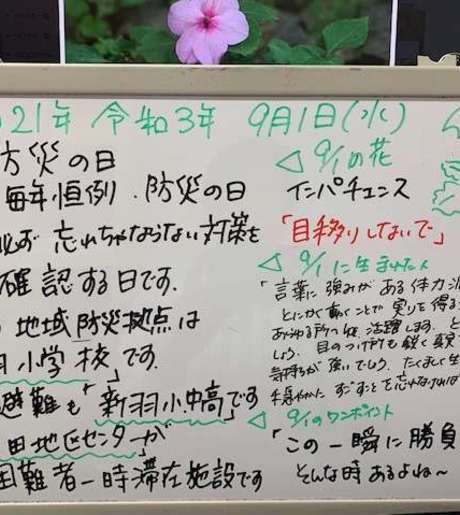 21年 令和3年 9月1日(水)
防災の日
毎年恒例、防災の日
必ず忘れちゃならない対策を
確認する日です。
地域防災拠点は
小学校です。
避難も「新羽小中高」です
田地区センターが
困難者一時滞在施設です
9/1の花
インパチェンス
「目移りしないで」
9/1に生まれた人
「言葉に強みがある体力派
とにかく動くことで実りを得る
活躍します。
しょう。目のつけ所も鋭く
気持ちが強いでしょう。たくましく
穏やかに すごすことを忘れなければ
9/1のワンポイント
「この一瞬に勝負
そんな時あるよね〜